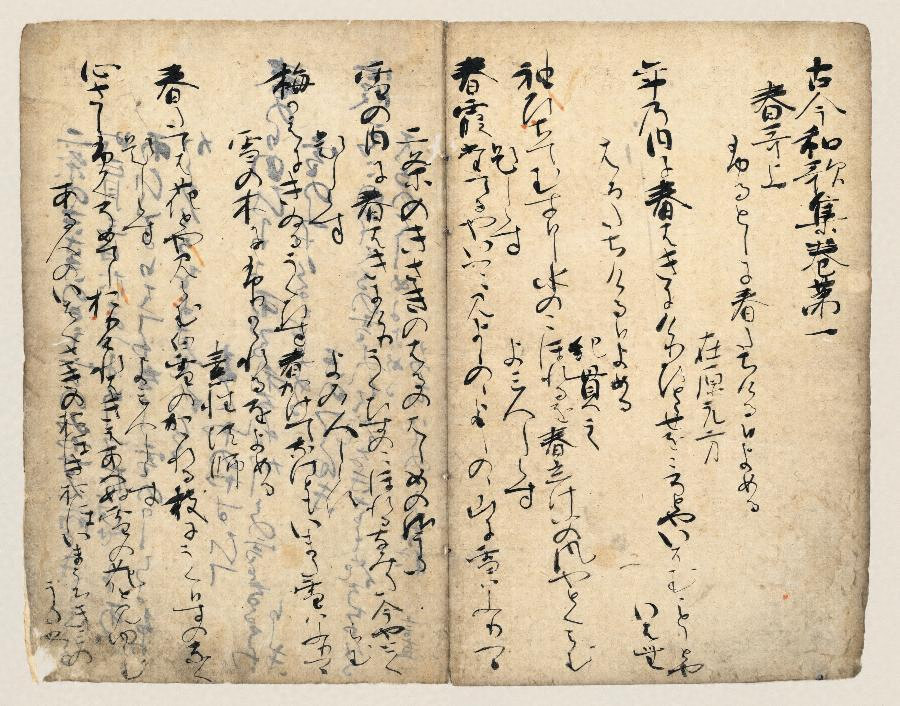 古今和歌集巻第一
春哥上
ふるとしに春たちける日よめる
在原元方
年の内に春はきにけりひとゝせをこそとやいはむことしとや
いはむ
はるたちける日よめる
紀貫之
袖ひちてむすひし水のこほれるを春立けふの風やとくらむ
題しらす
よみ人しらす
春霞たてるやいつこみよしのゝよしのゝ山に雪はふりつゝ
二条のきさきのはるのはしめの御うた
雪の内に春はきにけりうくひすのこほれるなみた今やとくらむ
題しらす
よみ人しらす
梅かえにきゐるうくひす春かけてなけともいまた雪はふりつゝ
雪の木にふりかゝれるをよめる
素性法師
春たては花とや見らむ白雪のかゝれる枝にうくひすのなく
題しらす
よみ人しらす
心さしふかくそめてし折けれはきえあへぬ雪の花と見ゆらむ
ある人のいはくさきのおほきおほいまうちきみの
うた也